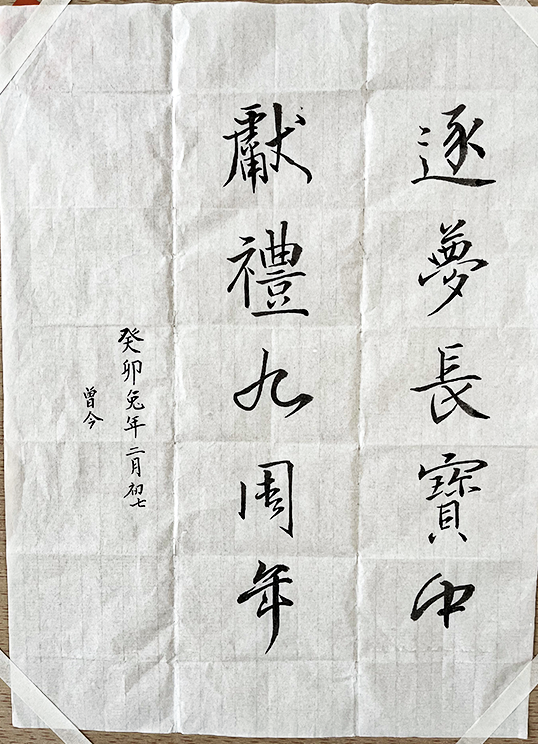 逐夢長寶中
獻禮九周年
癸卯兔年二月初七
曾今